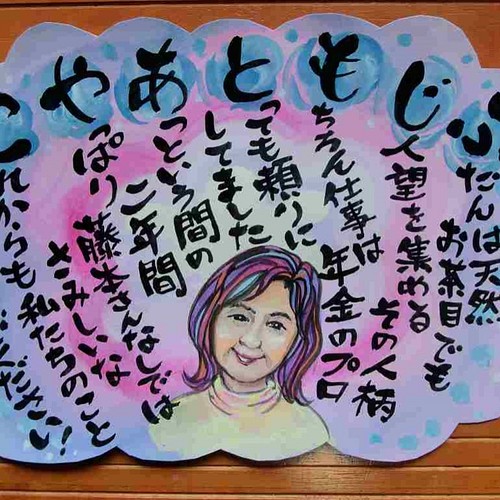 ふだんは天然
お茶目でも
じ人望を集める
その人柄
もちろん仕事は
年金のプロ
とっても頼りに
してました
あっという間の
二年間
やっぱり藤本さんなしでは
さみしいな
これからも私たちのこと
ください!